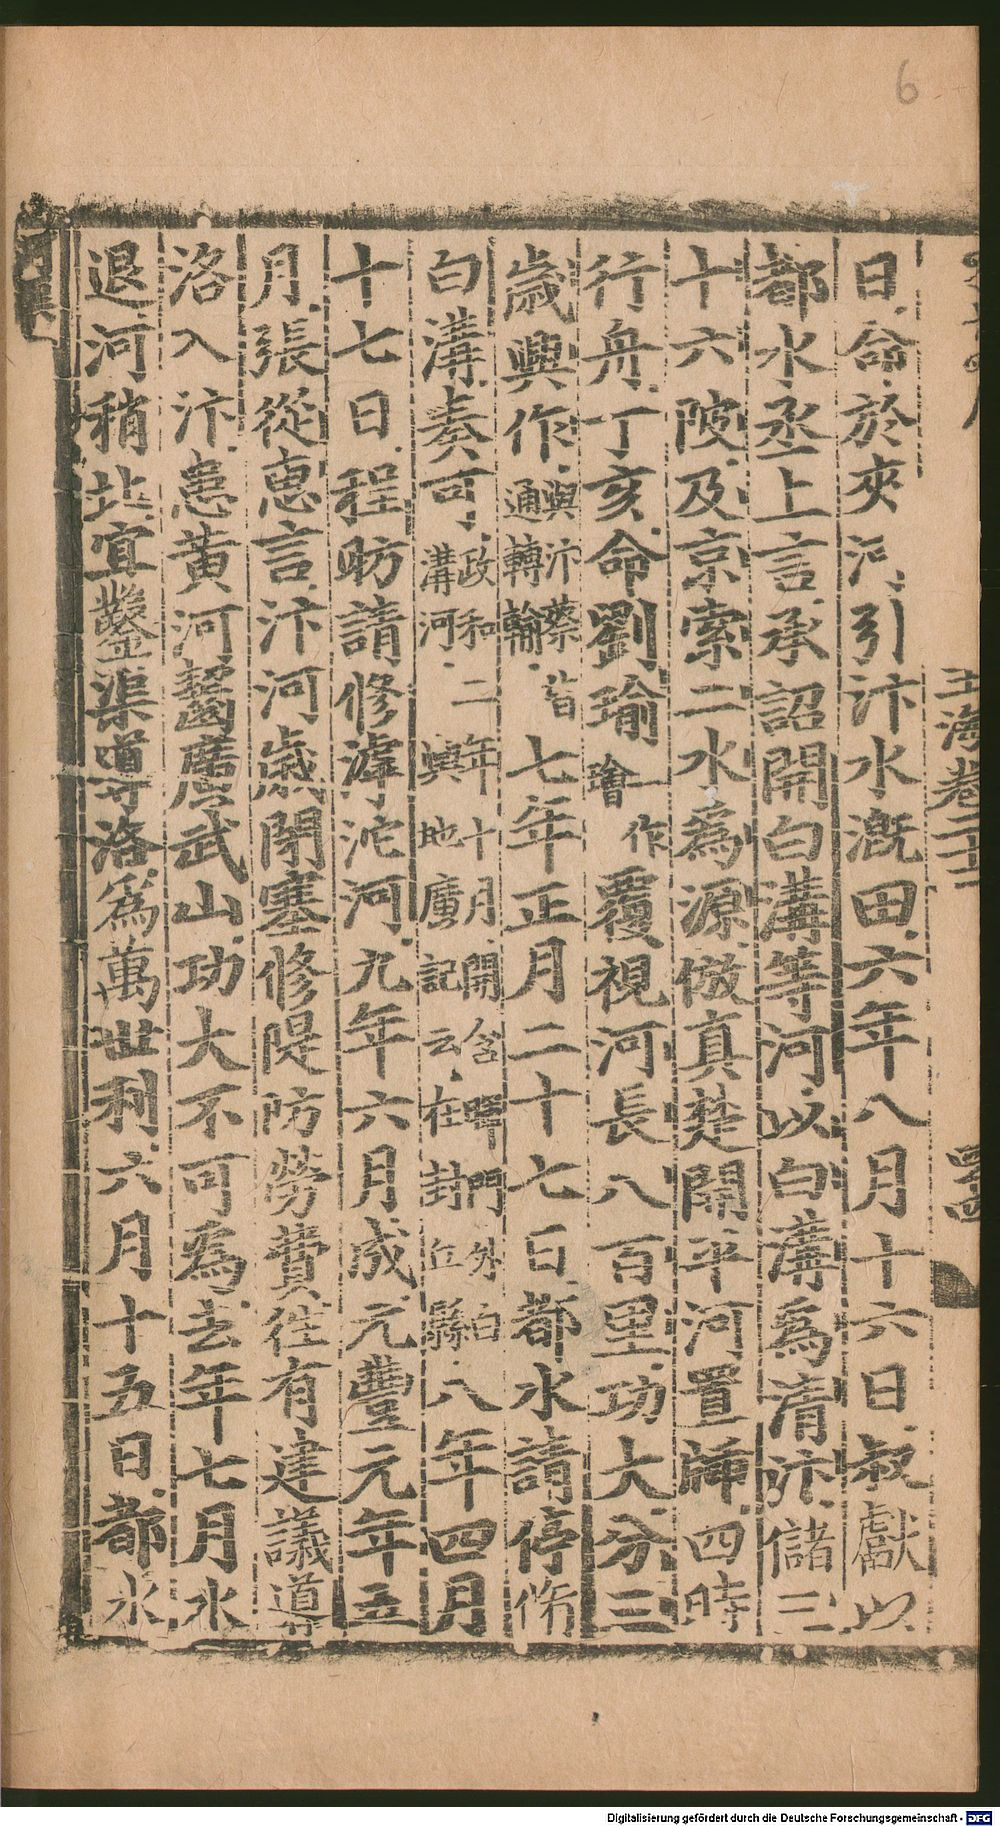 6
玉海卷二十二
日命於夾河引汴水漑田六年八月十六日叔獻以
都水丞上言承詔開白溝等河以白溝爲清汴儲三
十六陂及京索二水爲源倣真楚開平河置牐四時
行舟丁亥命劉瑜一作璯覆視河長八百里功大分三
歲興作與汴蔡皆通轉輸七年正月二十七日都水請停脩
白溝奏可政和二年十月開含暉門外白溝河輿地廣記云在封丘縣八年四月
十七日程昉請修滹沱河九年六月成元豐元年五
月張從惠言汴河歲閉塞修隄防勞費往有建議道
洛入汴患黃河齧廣武山功大不可爲去年七月水
退河稍北宜鑿渠導洛爲萬世利六月十五日都水
Digitalisierung gefördert durch die Deutsche Forschungsgemeinschaft - DFG